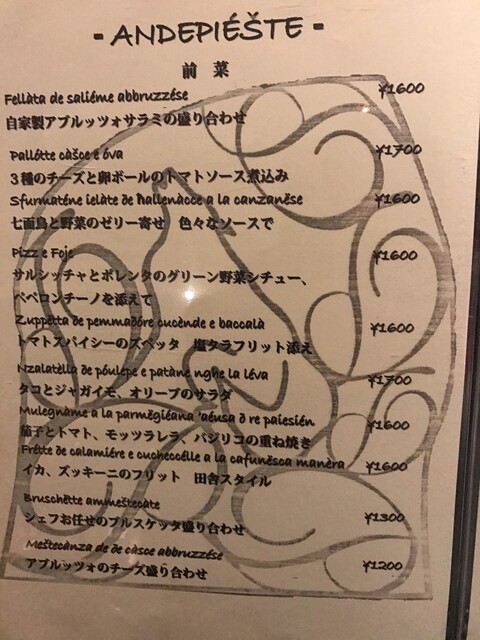 - ANDEPIÉŠTE -
前 菜
Fellàta de saliéme abbruzzése ¥1600
自家製アブルッツォサラミの盛り合わせ
Pallótte càšce e óva ¥1700
3種のチーズと卵ボールのトマトソース煮込み
Sfurmaténe ielàte de hallenàcce a la canzanése ¥1600
七面鳥と野菜のゼリー寄せ 色々なソースで
Pizz e Foje ¥1600
サルシッチャとポレンタのグリーン野菜シチュー、
ペペロンチーノを添えて
Zuppétta de pemmadóre cucènde e baccalà ¥1600
トマトスパイシーのズペッタ 塩タラフリット添え
Nzalatèlla de póulepe e patàne nghe la léva ¥1700
タコとジャガイモ、オリーブのサラダ
Mulegnàme a la parmëgiéana 'aéusa ò re paiesién ¥1600
茄子とトマト、モッツァレラ、バジリコの重ね焼き
Frétte de calamiére e cucheccélle a la cafunésca manèra ¥1600
イカ、ズッキーニのフリット 田舎スタイル
Bruschëtte ammeštecàte ¥1300
シェフお任せのブルスケッタ盛り合わせ
Meštecànza de de càsce abbruzzése ¥1200
アブルッツォのチーズ盛り合わせ